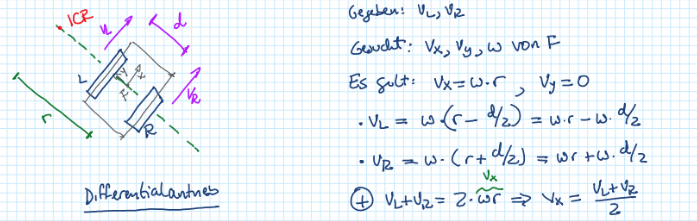 ICR
VL
d
L
y
x
F
VR
r
R
Differentialantrieb
Gegeben: VL, VR
Gesucht: Vx, Vy, ω von F
Es gilt: Vx = ω·r , Vy = 0
• VL = ω·(r - d/2) = ω·r - ω·d/2
• VR = ω·(r + d/2) = ωr + ω·d/2
Vx
⊕ VL+VR = 2·ωr ⇒ Vx = VL+VR / 2